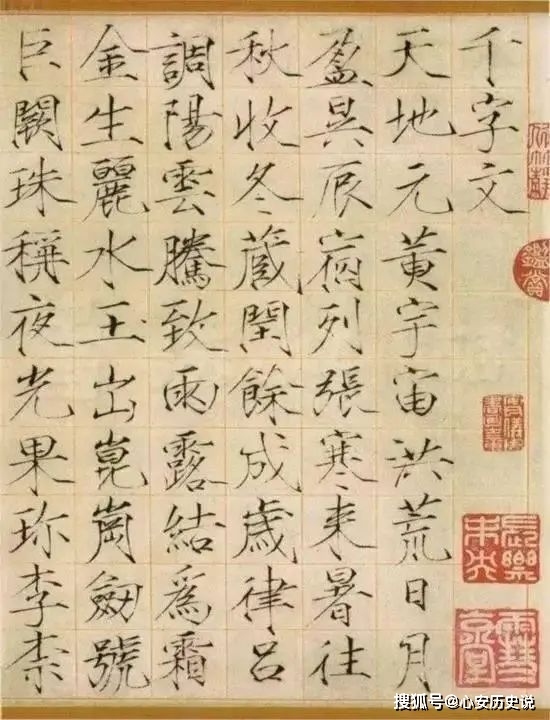 千字文
天地元黃宇宙洪荒日月
盈昃辰宿列張寒来暑往
秋收冬蔵閏餘成歲律呂
調陽雲騰致雨露結爲霜
金生麗水玉出崑崗劒號
巨闕珠稱夜光果珎李柰
鑑賞
搜狐号@心安历史说